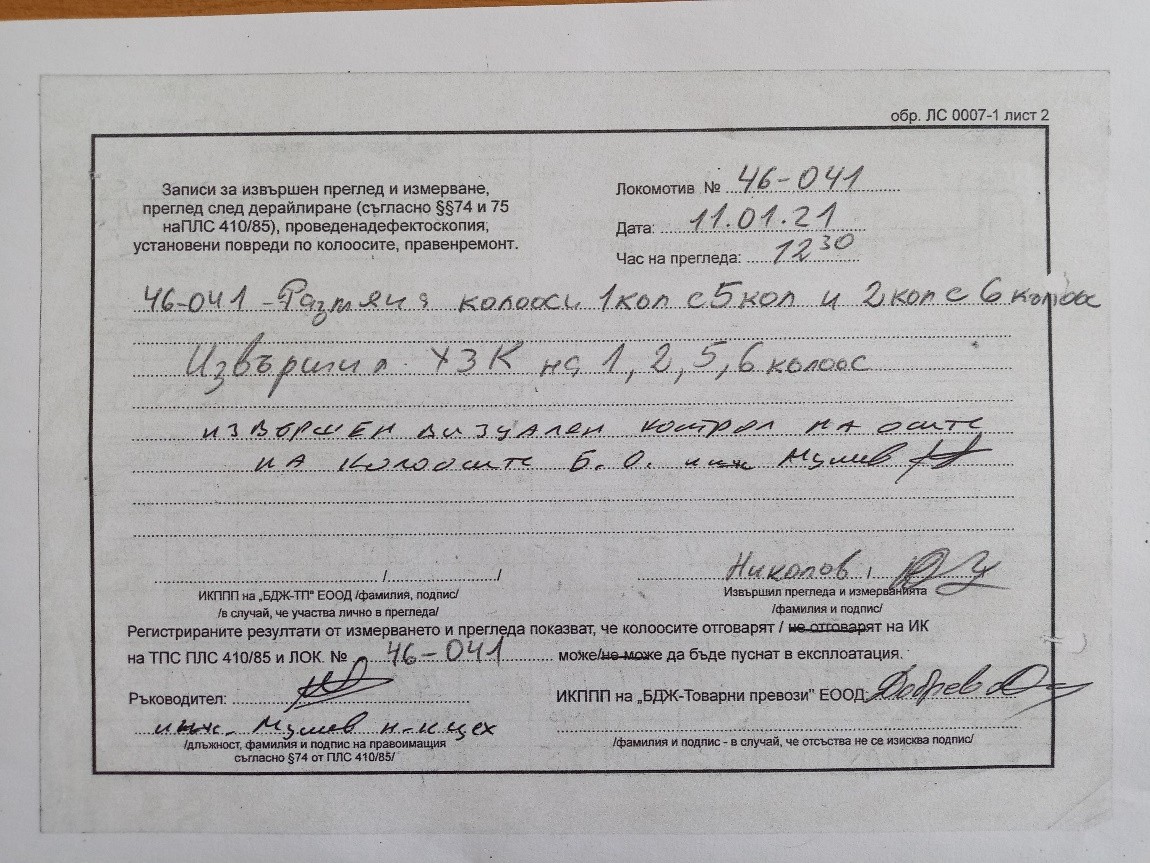 обр. ЛС 0007-1 лист 2
Записи за извършен преглед и измерване,
преглед след дерайлиране (съгласно §§74 и 75
наПЛС 410/85), проведенадефектоскопия,
установени повреди по колоосите, правенремонт.
Локомотив № 46-041
Дата: 11.01.21
Час на прегледа: 12 30
46-041 - Размяна колооси 1кол с 5кол и 2кол с 6 колоос
Извършил УЗК на 1, 2, 5, 6 колоос
извършен визуален контрол на осите
на колоосите Б.О. инж Мулев
Николов
ИКППП на „БДЖ-ТП" ЕООД /фамилия, подпис/
/в случай, че участва лично в прегледа/
Извършил прегледа и измерванията
/фамилия и подпис/
Регистрираните резултати от измерването и прегледа показват, че колоосите отговарят / не отговарят на ИК
на ТПС ПЛС 410/85 и ЛОК. № 46-041 може/не може да бъде пуснат в експлоатация.
Ръководител:
инж. Мулев н-к цех
/длъжност, фамилия и подпис на правоимащия
съгласно §74 от ПЛС 410/85/
ИКППП на „БДЖ-Товарни превози" ЕООД: Добрев
/фамилия и подпис - в случай, че отсъства не се изисква подпис/